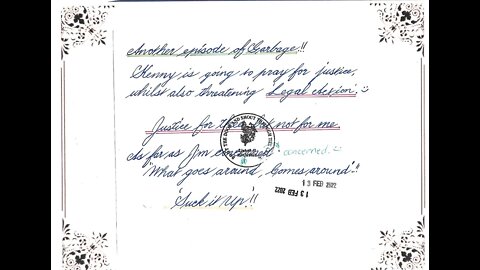 Another episode of Garbage!!
Kenny is going to pray for justice,
whilst also threatening Legal Action'.
Justice for them but not for me
As far as I'm concerned concerned.
"What goes around, Comes around"!!
13 FEB 2022
13 FEB 2022
'Suck it Up'!!